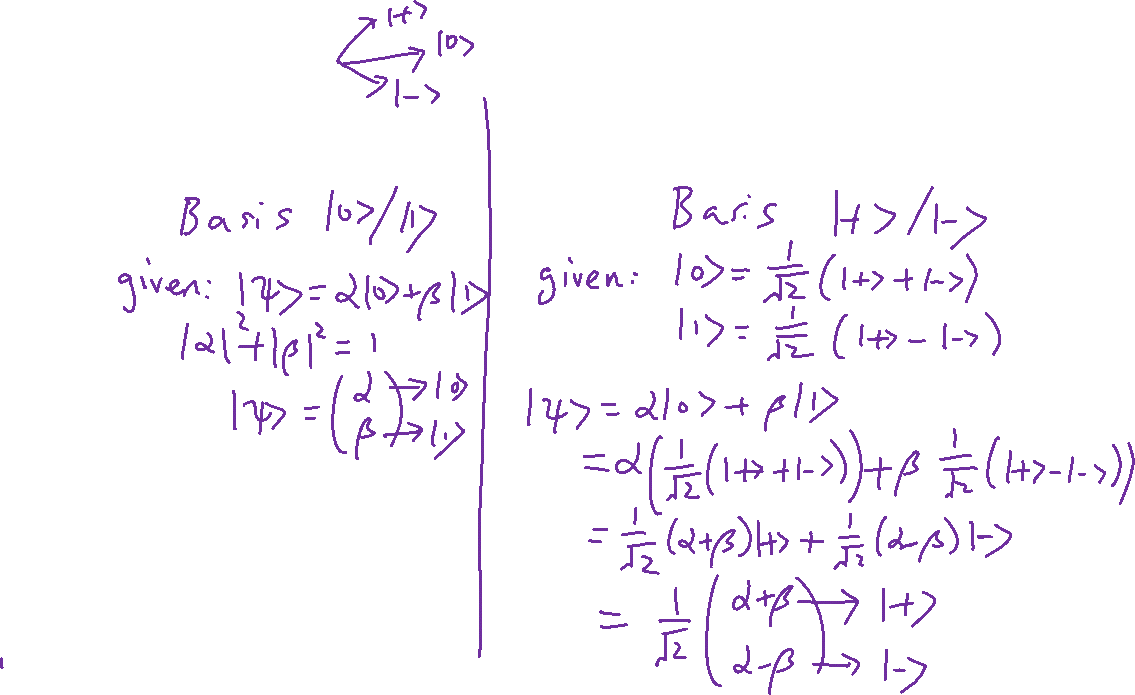 |+>
|0>
|->
Basis |0>/|1>
given: |ψ>=α|0>+β|1>
|α|²+|β|²=1
|ψ>=(α→|0>
β→|1>)
Basis |+>/|->
given: |0>=1/√2(|+>+|->)
|1>=1/√2(|+>-|->)
|ψ>=α|0>+β|1>
=α(1/√2(|+>+|->))+β 1/√2(|+>-|->))
=1/√2(α+β)|+>+1/√2(α-β)|->
=1/√2(α+β→|+>
α-β→|->)